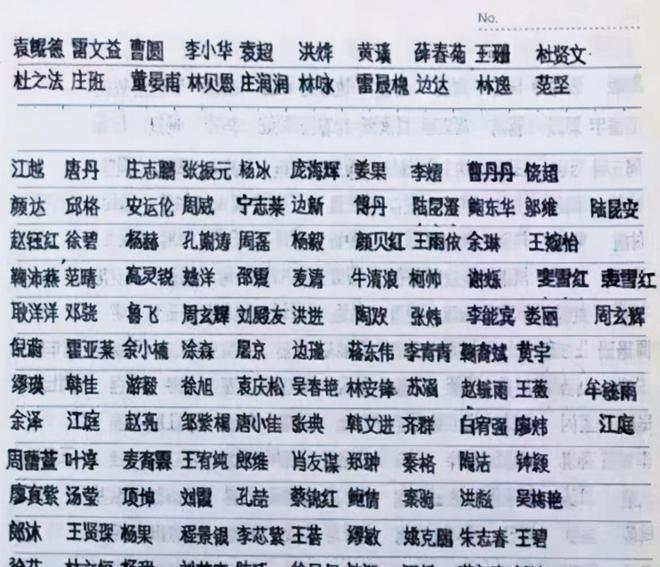 No.
袁鲲德 雷文益 曹圆 李小华 袁超 洪烨 黄瑱 薛春菊 王珊 杜贤文
杜之法 庄班 董晏甫 林贝恩 庄润润 林咏 雷晟槐 边达 林逸 范坚
江越 唐丹 庄志鹏 张振元 杨冰 庞海辉 姜果 李熠 曹丹丹 饶超
颜达 邱格 安运伦 周威 宁志莱 边新 傅丹 陆昆滢 鲍东华 邬维 陆昆安
赵钰红 徐碧 杨赫 孔谢涛 周磊 杨毅 颜贝虹 王雨侬 朱琳 王嫚怡
鞠沛燕 范晴 高灵锐 越洋 邵震 麦清 牛清浪 柯帅 鲍炼 雯雪红 裴雪红
耿洋洋 邓骁 鲁飞 周玄辉 刘殿友 洪进 陶欢 张炜 李能宾 娄丽 周玄辉
倪蔚 霍亚莱 佘小楠 涂森 屠京 边瑾 蒋东伟 李青青 鞠育斌 黄宇
缪瑛 韩佳 游毅 徐旭 袁庆松 吴春艳 林安锋 苏涵 赵毓雨 王薇 牟毓雨
余泽 江庭 赵亮 邹紫楣 唐小佳 张典 韩文进 齐群 白宥强 廖炜 江庭
周蕾萱 叶淳 麦育霖 王宥纯 郎维 肖友谋 郑翀 秦格 陶沽 钟颖
廖真紫 汤莹 项帅 刘霞 孔喆 蔡锦红 鲍倩 秦驰 洪彪 吴梅艳
郎沐 王贤琛 杨昊 程景银 李芯紫 王荟 缪敏 姚克鹏 朱志春 王碧